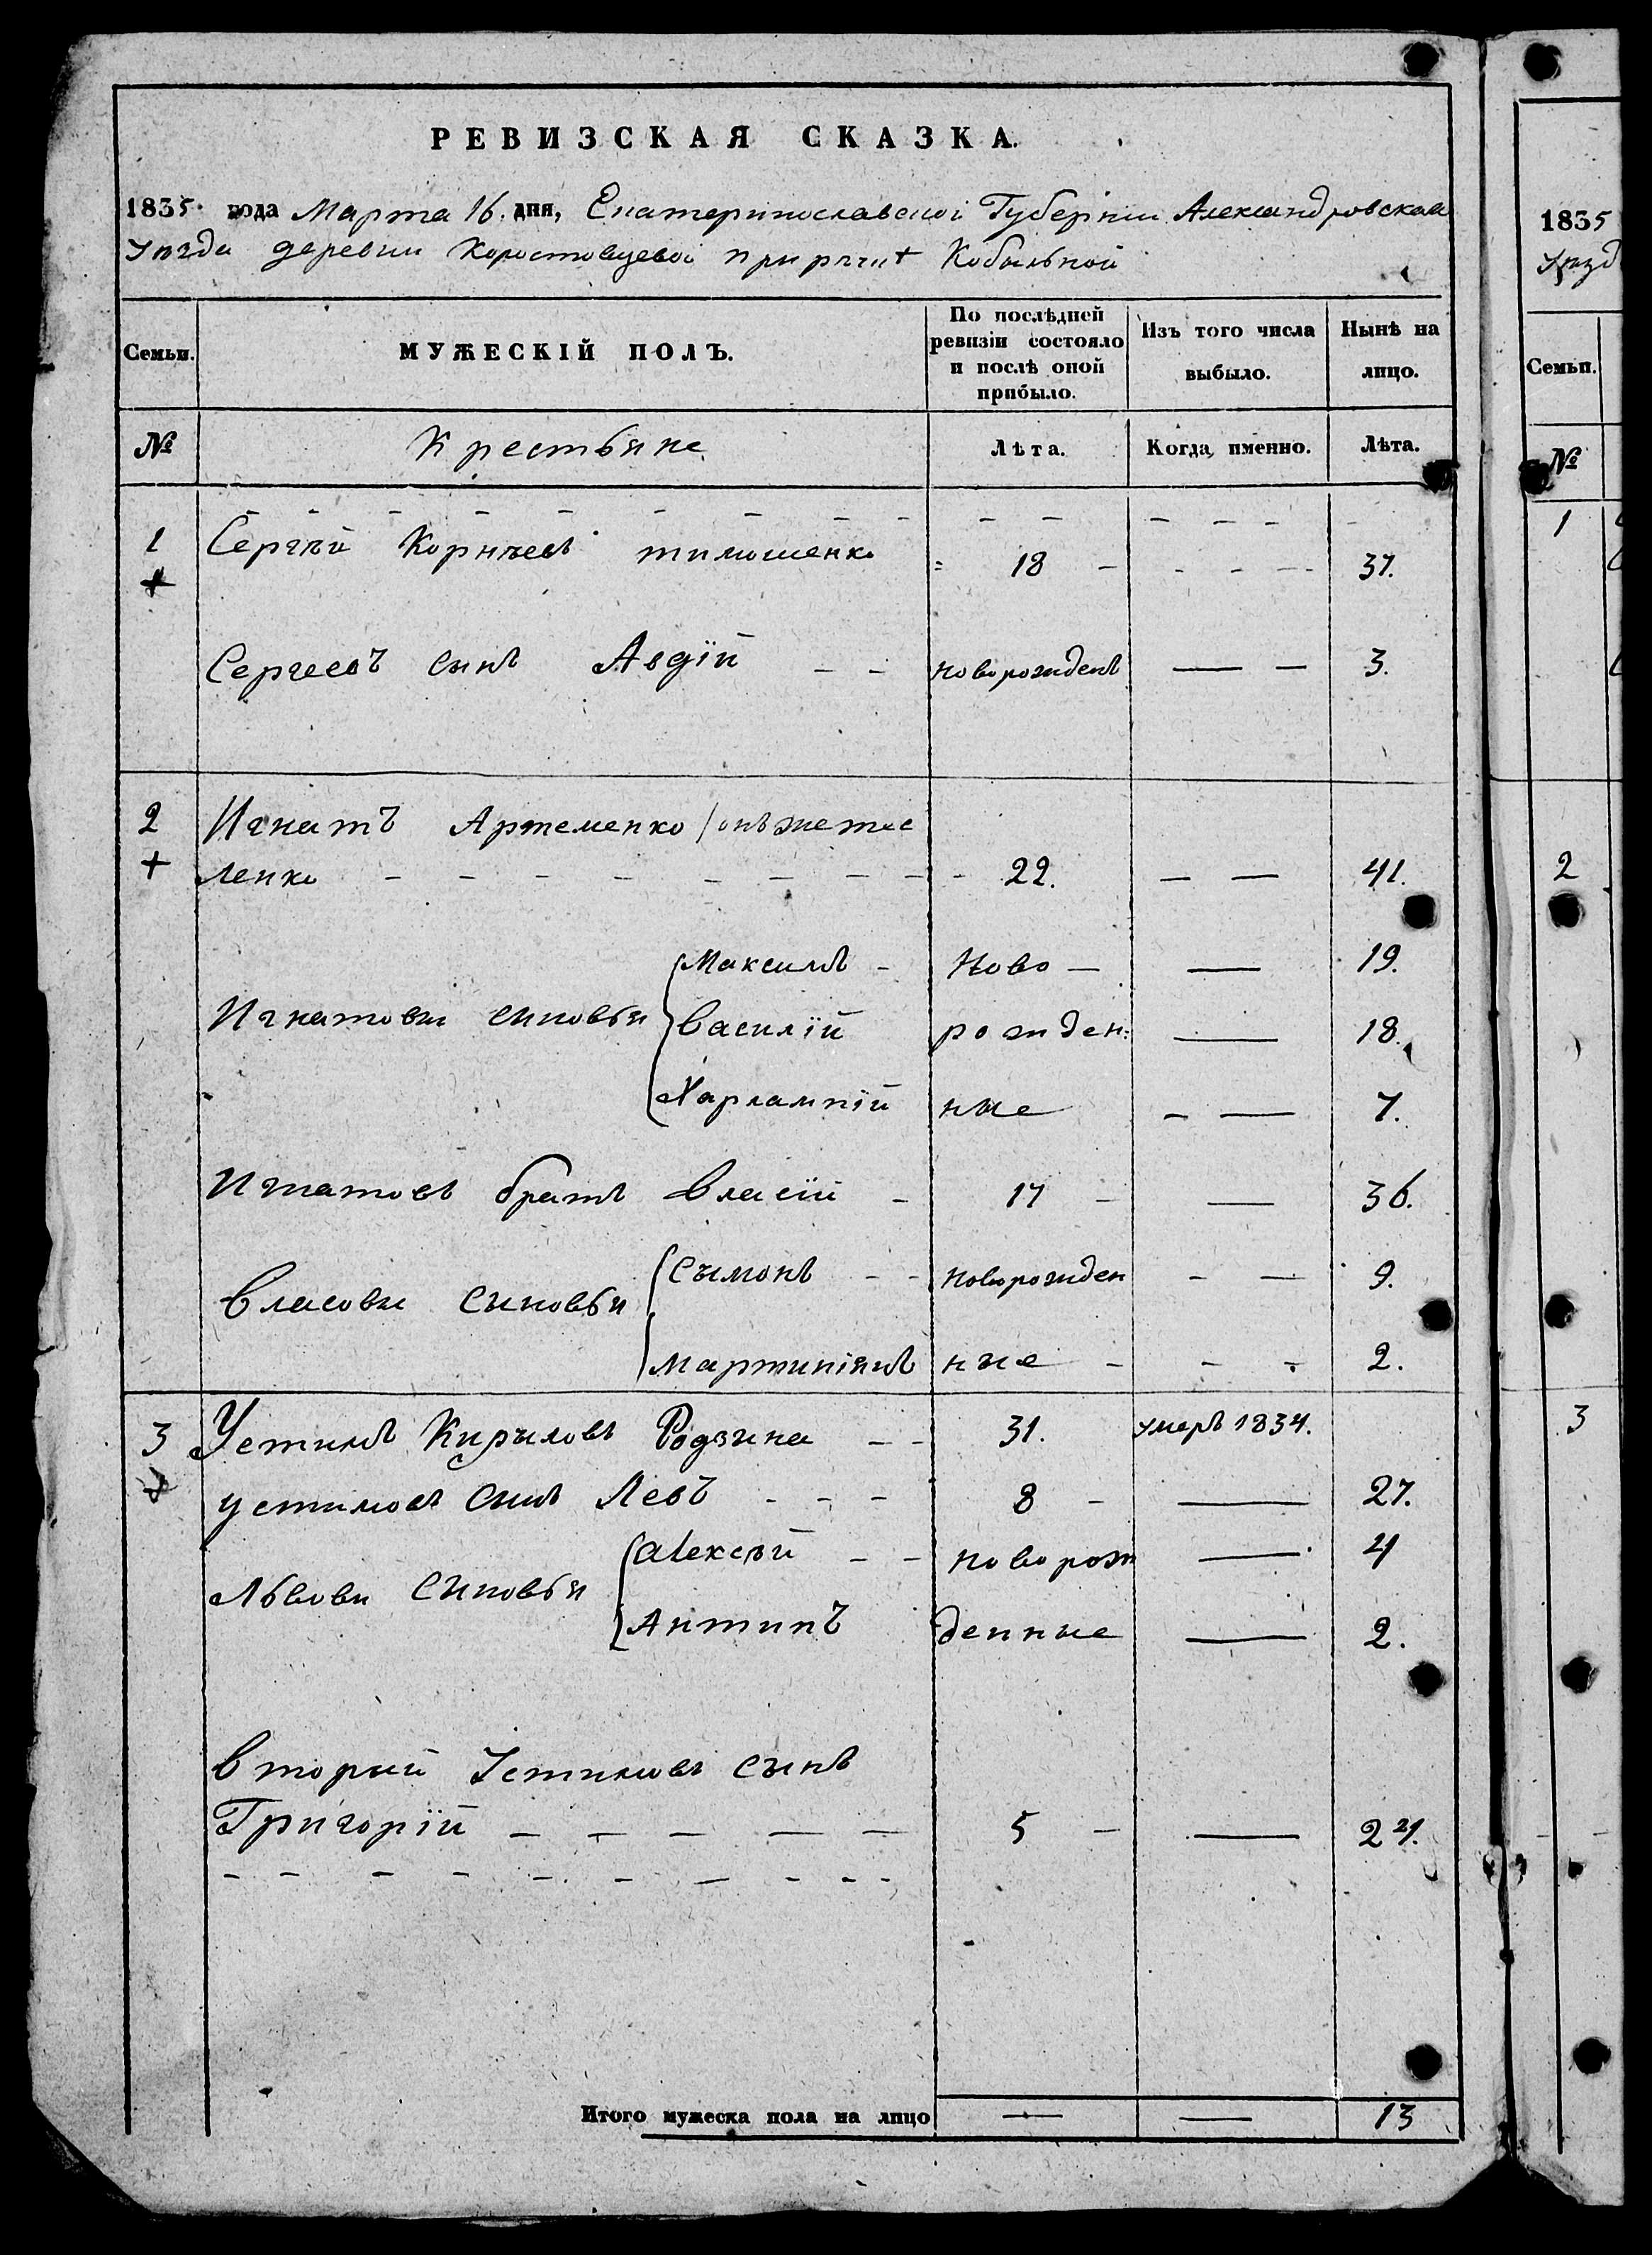 РЕВИЗСКАЯ СКАЗКА.
1835 года Марта 16. дня, Екатеринославской Губернiи Александровскаго
Уѣзда деревни Коростовцевой при рѣчкѣ Кобыльной
Семьи. МУЖЕСКІЙ ПОЛЪ. По послѣдней ревизіи состояло и послѣ оной прибыло. Изъ того числа выбыло. Нынѣ на лицо.
№ Крестьяне Лѣта. Когда именно. Лѣта.
1 Сергѣй Корнѣевъ тимошенко 18 37.
Сергеевъ сынъ Авдій новорожденъ 3.
2 Игнатъ Артеменко / онъ же
ленко 22. 41.
Максимъ Ново 19.
Игнатовы сыновья Василій рожден: 18.
Харлампій ные 7.
Игнатовъ братъ Власій 17 36.
Сымонъ новорожден 9.
Власовы сыновья
Мартиніянъ ные 2.
3 Устимъ Кирыловъ Родзына 31. умеръ 1834.
устимовъ сынъ Левъ 8 27.
Алексѣй новорож 4
Львовы сыновья
Антипъ денные 2.
Вторый Устимовъ сынъ
Григорій 5 24.
Итого мужеска пола на лицо 13
1835
Уѣзд
Семьи.
№
1
2
3